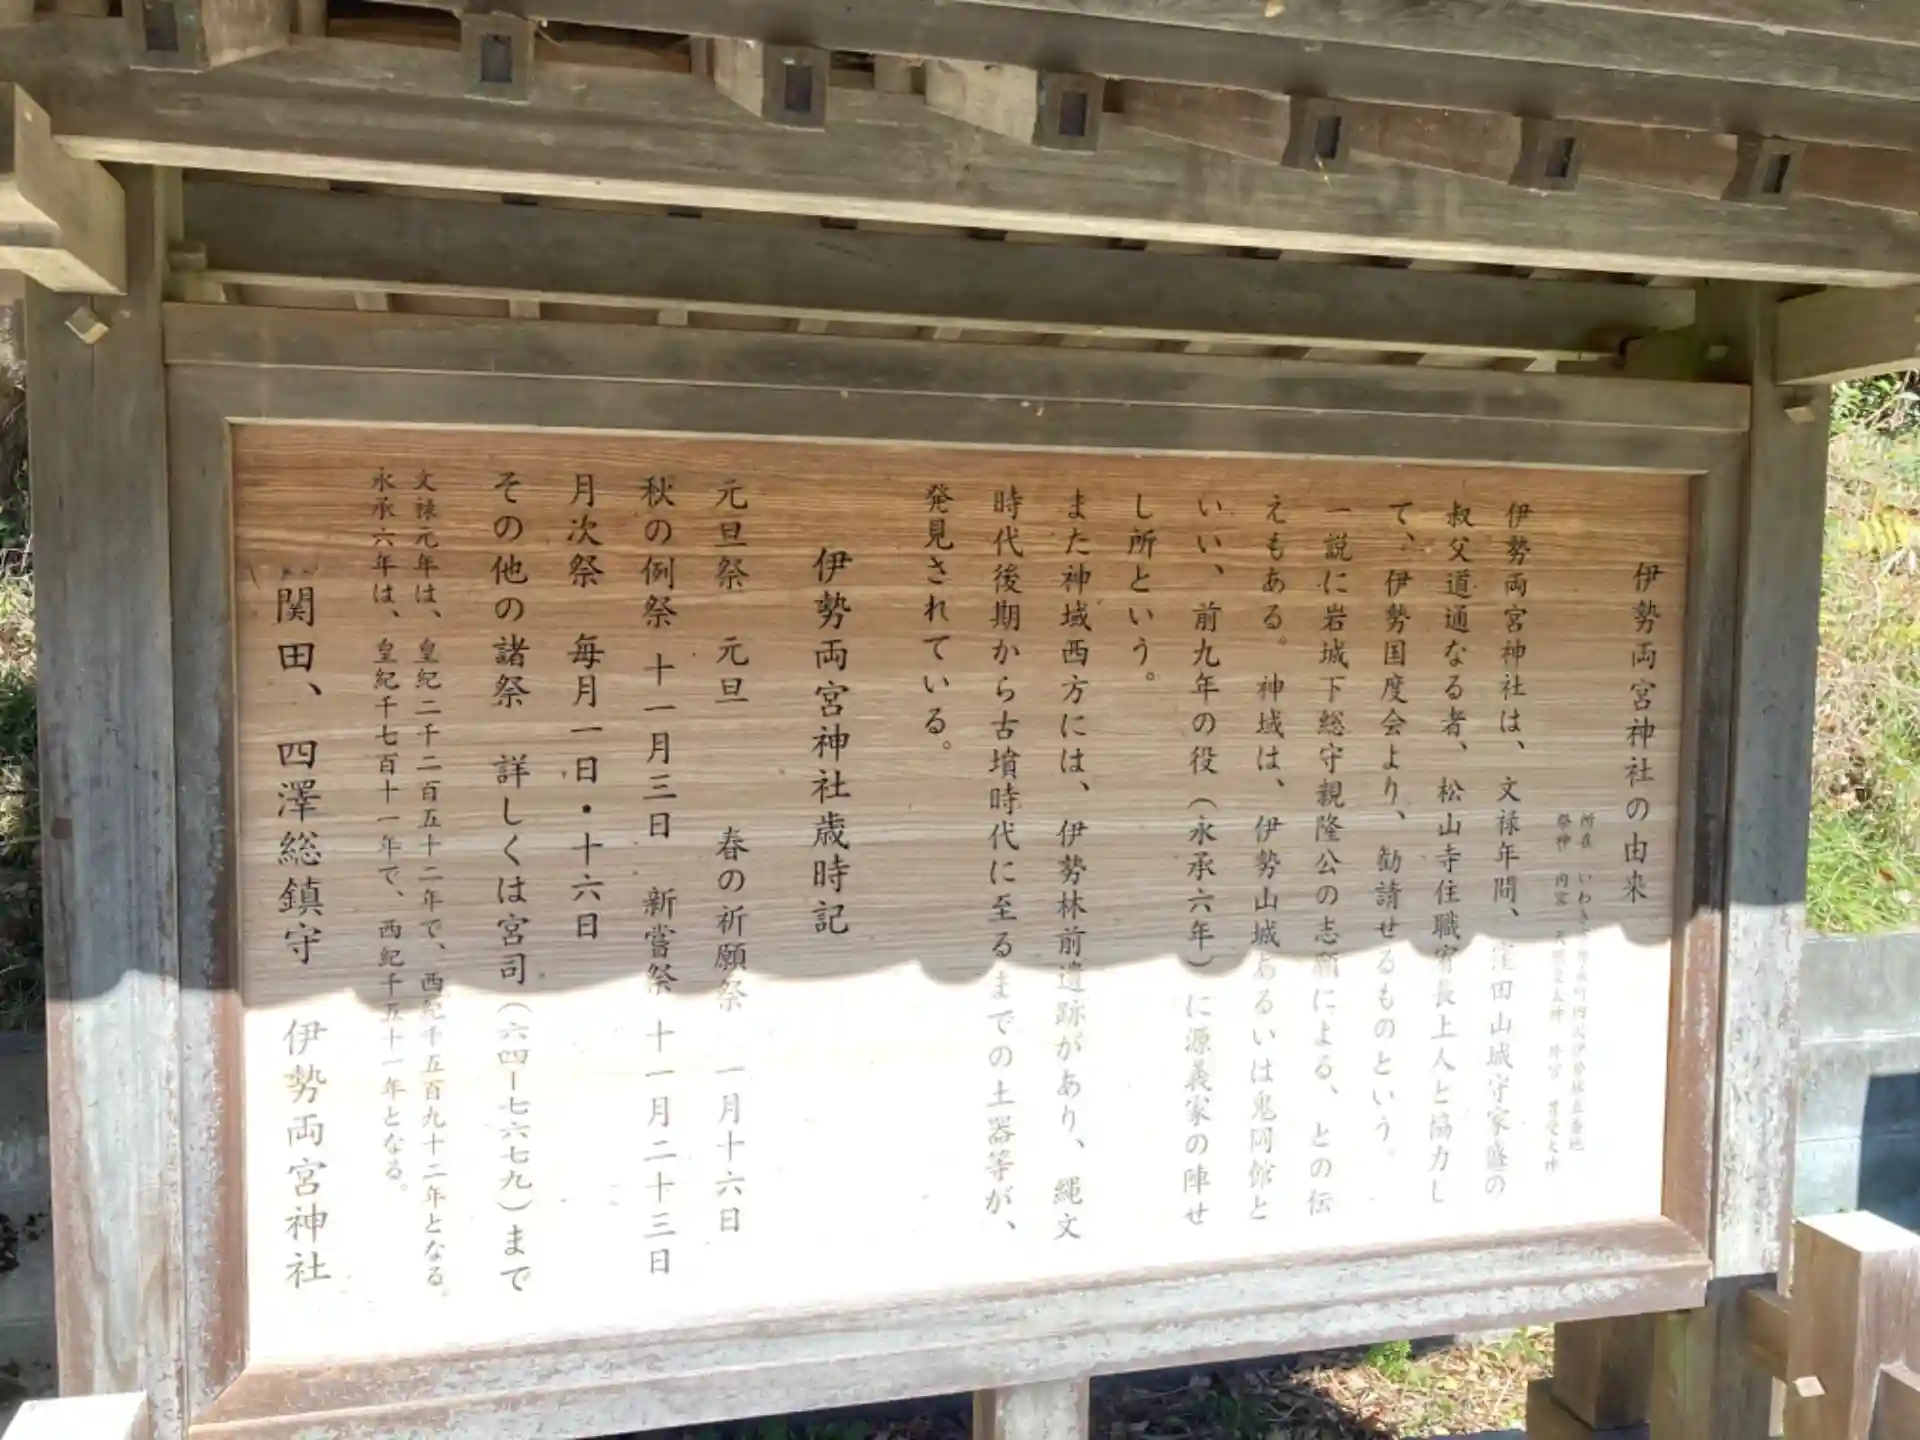 伊勢両宮神社の由来
所在 いわき市勿来町四沢伊勢林五番地
祭神 内宮 天照皇大神 外宮 豊受大神
伊勢両宮神社は、文禄年間、窪田山城守家盛の
叔父道通なる者、松山寺住職宥長上人と協力し
て、伊勢国度会より、勧請せるものという。
一説に岩城下総守親隆公の志願による、との伝
えもある。神域は、伊勢山城あるいは鬼阿館と
いい、前九年の役（永承六年）に源義家の陣せ
し所という。
また神域西方には、伊勢林前遺跡があり、縄文
時代後期から古墳時代に至るまでの土器等が、
発見されている。
伊勢両宮神社歳時記
元旦祭 元旦 春の祈願祭 一月十六日
秋の例祭 十一月三日 新嘗祭 十一月二十三日
月次祭 毎月一日・十六日
その他の諸祭 詳しくは宮司（六四ー七六七九）まで
文禄元年は、皇紀二千二百五十二年で、西紀千五百九十二年となる。
永承六年は、皇紀千七百十一年で、西紀千五十一年となる。
関田、四澤総鎮守 伊勢両宮神社